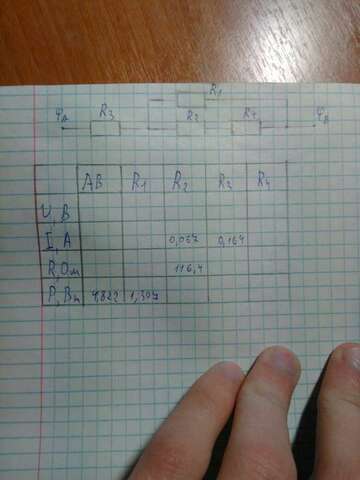 R1
φA R3 R2 R4 φB
AB R1 R2 R3 R4
U, В
I, A 0,067 0,164
R, Ом 116,4
P, Вт 4,822 1,307